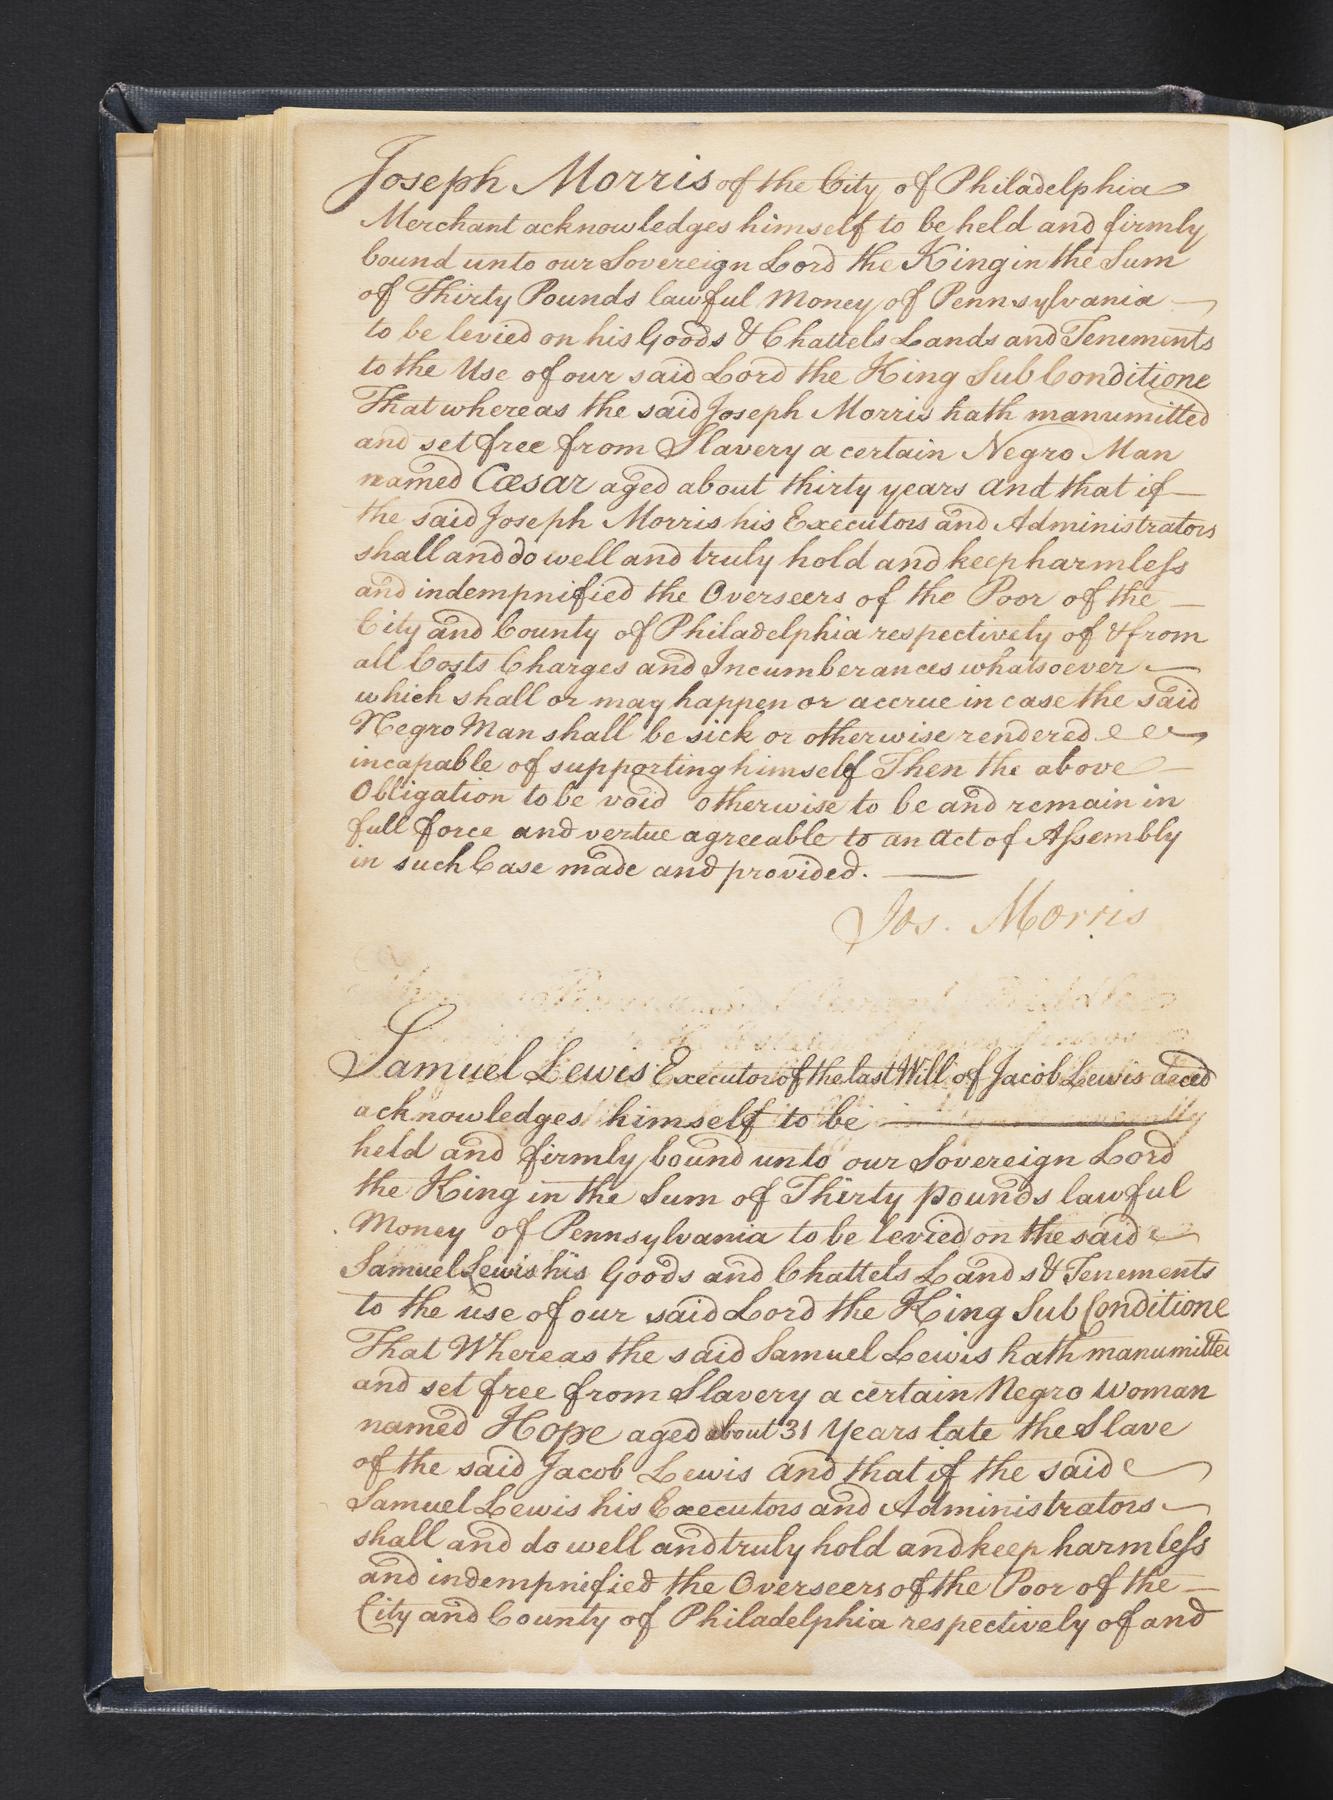 Joseph Morris of the City of Philadelphia
Merchant acknowledges himself to be held and firmly
bound unto our Sovereign Lord the King in the Sum
of Thirty Pounds lawful Money of Pennsylvania
to be levied on his Goods & Chattels Lands and Tenements
to the Use of our said Lord the King Sub Conditione
That whereas the said Joseph Morris hath manumitted
and set free from Slavery a certain Negro Man
named Cæsar aged about thirty years and that if
the said Joseph Morris his Executors and Administrators
shall and do well and truly hold and keep harmless
and indempnified the Overseers of the Poor of the
City and County of Philadelphia respectively of & from
all Costs Charges and Incumberances whatsoever
which shall or may happen or accrue in case the said
Negro Man shall be sick or otherwise rendered
incapable of supporting himself Then the above
Obligation to be void otherwise to be and remain in
full force and vertue agreeable to an act of Assembly
in such Case made and provided.
Jos. Morris
Samuel Lewis Executor of the last Will of Jacob Lewis deced
acknowledges himself to be
held and firmly bound unto our Sovereign Lord
the King in the Sum of Thirty pounds lawful
Money of Pennsylvania to be levied on the said
Samuel Lewis his Goods and Chattels Lands & Tenements
to the use of our said Lord the King Sub Conditione
That Whereas the said Samuel Lewis hath manumitted
and set free from Slavery a certain Negro woman
named Hope aged about 31 Years late the Slave
of the said Jacob Lewis and that if the said
Samuel Lewis his Executors and Administrators
shall and do well and truly hold and keep harmless
and indempnified the Overseers of the Poor of the
City and County of Philadelphia respectively of and